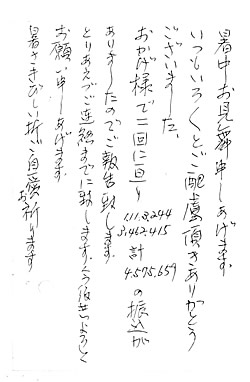 暑中お見舞申しあげます
いつもいろくとご配慮頂きありがとう
ございました、
おかげ様で二回に亘り
1,113,244
3,462,415
計
4,575,659
の振込が
ありましたのでご報告致します
とりあえずご連絡までに致します、今后共よろしく
お願い申しあげます
暑さきびしい折ご自愛
お祈ります